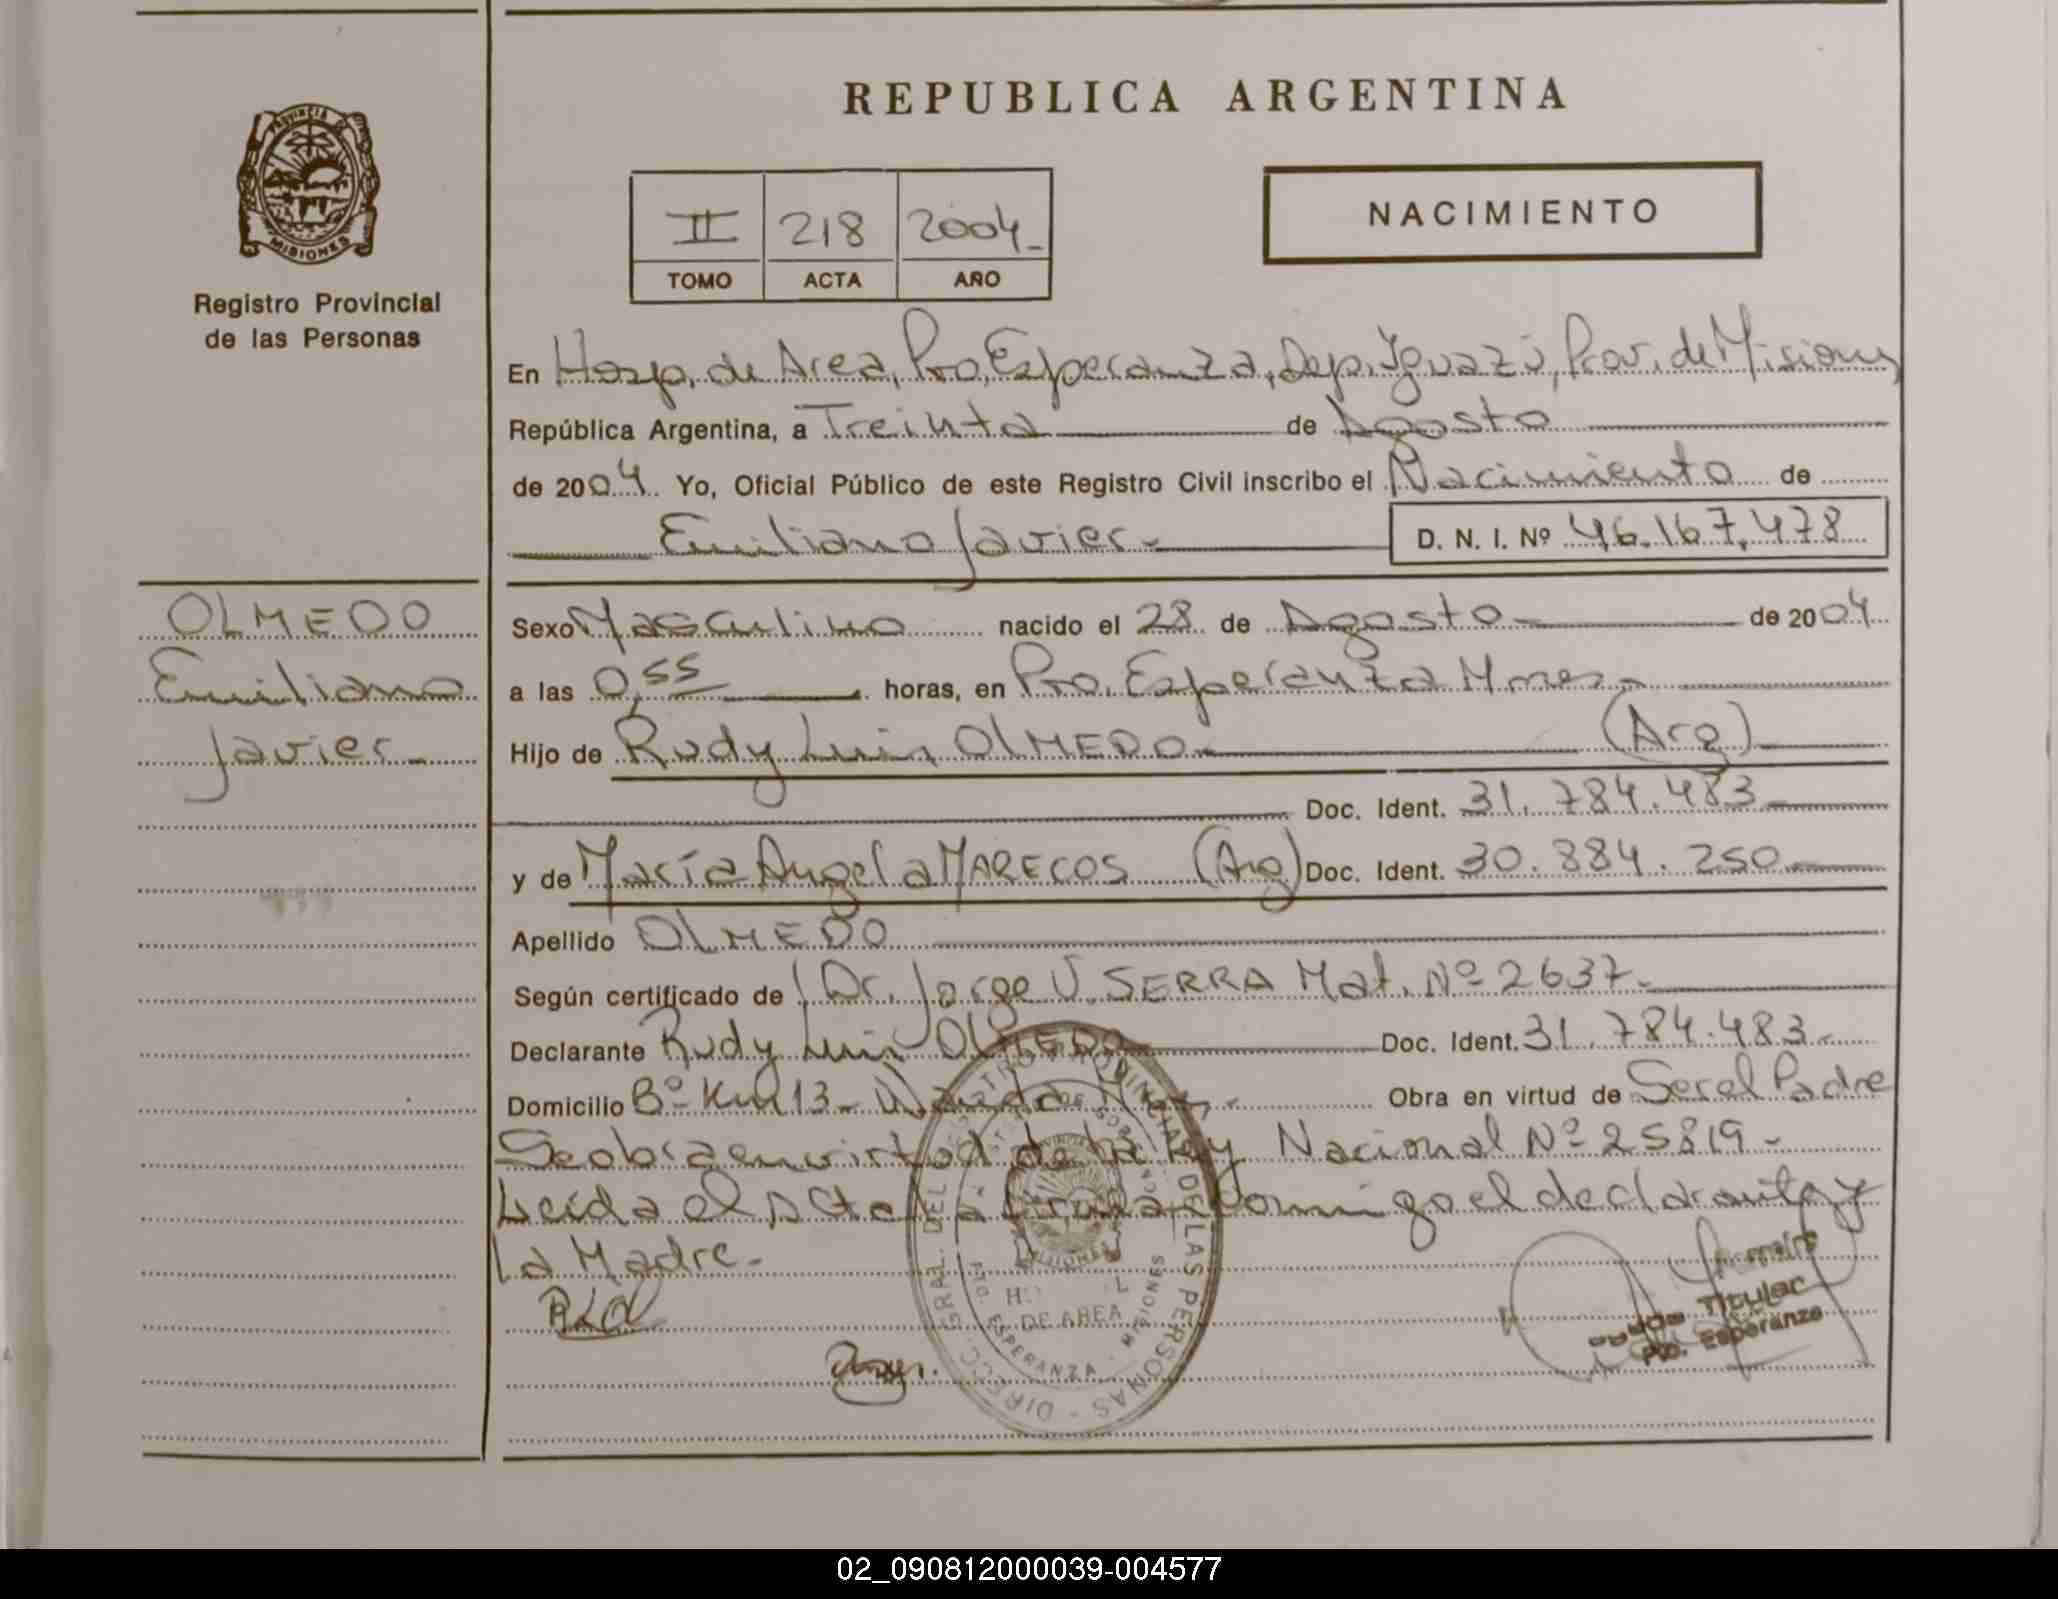 REPUBLICA ARGENTINA
PROVINCIA DE
MISIONES
Registro Provincial
de las Personas
II 218 2004
TOMO ACTA AÑO
NACIMIENTO
En Hosp. de Area, Pto. Esperanza, Dep. Iguazú, Prov. de Misiones
República Argentina, a Treinta de Agosto
de 2004. Yo, Oficial Público de este Registro Civil inscribo el Nacimiento de
Emiliano Javier.- D. N. I. Nº 46.167.478
OLMEDO
Emiliano
Javier
Sexo Masculino nacido el 28 de Agosto de 2004
a las 0,55 horas, en Pto. Esperanza Mnes.
Hijo de Rudy Luis OLMEDO (Arg)
Doc. Ident. 31.784.483
y de María Angela MARECOS (Arg) Doc. Ident. 30.884.250
Apellido OLMEDO
Según certificado de Dr. Jorge V. SERRA Mat. Nº 2637.
Declarante Rudy Luis OLMEDO Doc. Ident. 31.784.483
Domicilio Bº Km 13 - Wanda Mnes. Obra en virtud de Ser el Padre
Se obra en virtud de la Ley Nacional Nº 25819-
Leída el Acta la firma conmigo el declarante y
la Madre.-
DIRECC. GRAL. DEL REGISTRO PROVINCIAL DE LAS PERSONAS
MISIONES
DE AREA
PTO. ESPERANZA - MISIONES
Titular
Pto. Esperanza
02_090812000039-004577